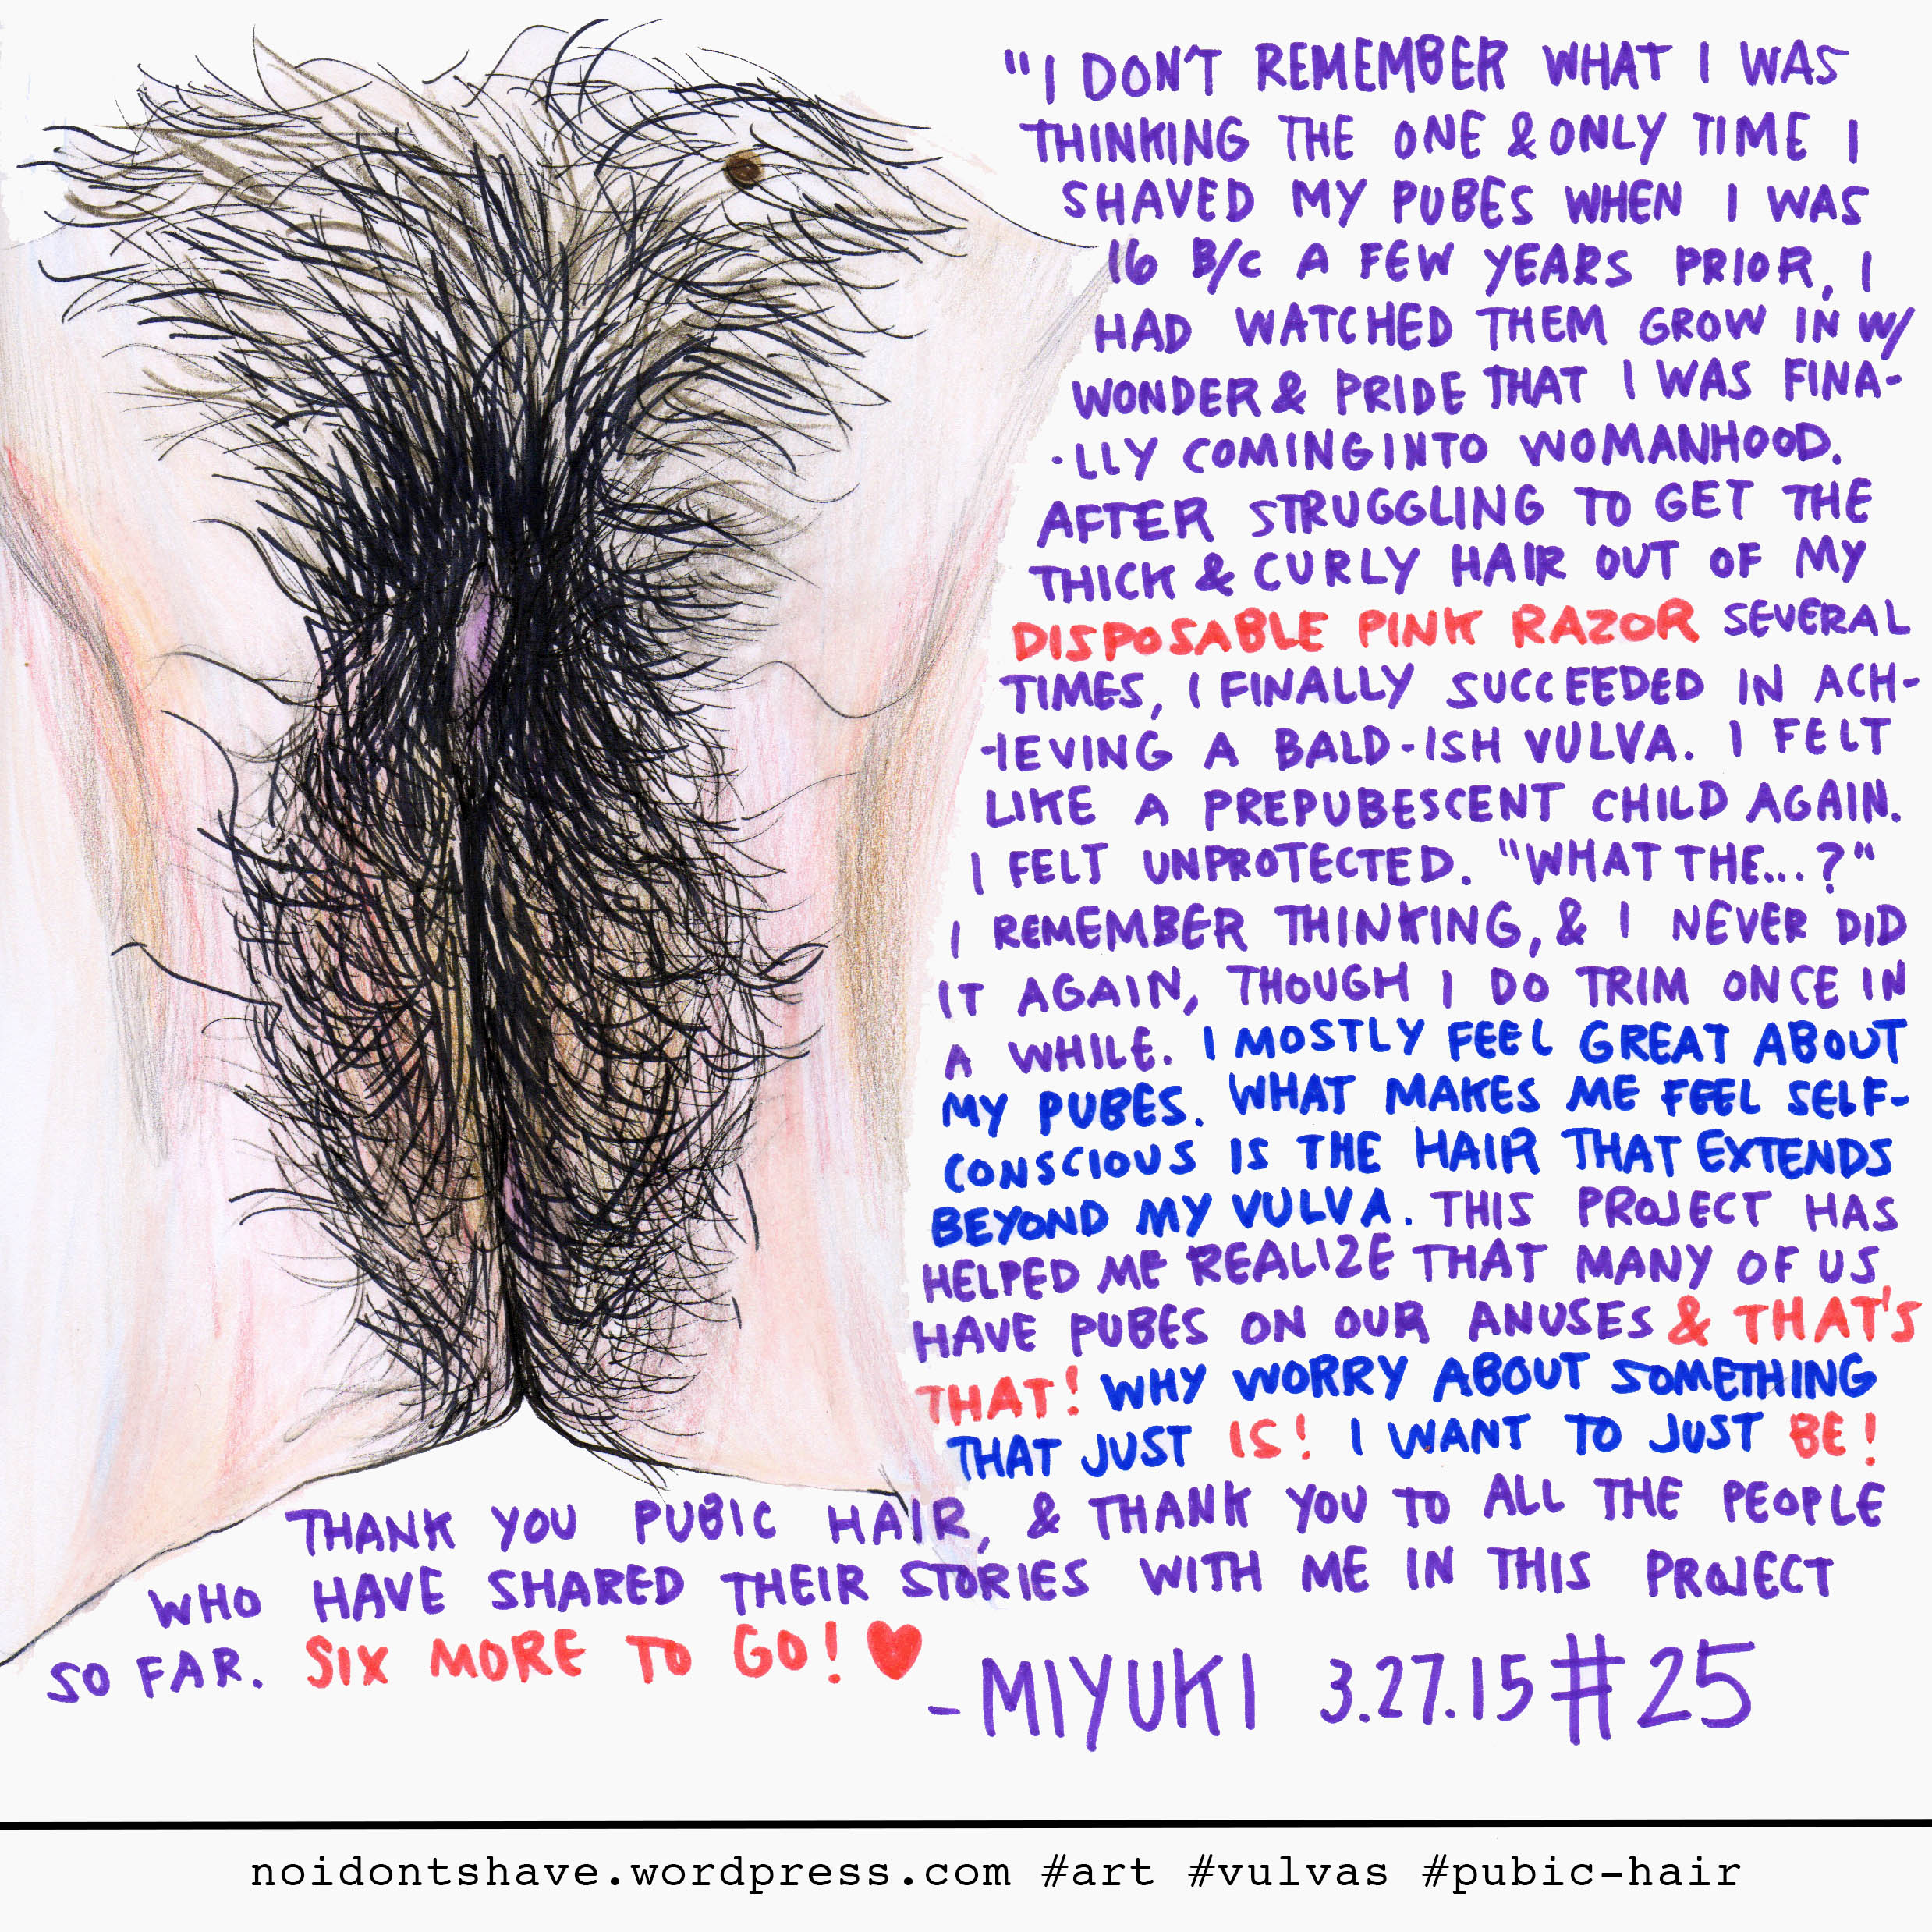 "I DON'T REMEMBER WHAT I WAS
THINKING THE ONE & ONLY TIME I
SHAVED MY PUBES WHEN I WAS
16 B/C A FEW YEARS PRIOR, I
HAD WATCHED THEM GROW IN W/
WONDER & PRIDE THAT I WAS FINA-
-LLY COMING INTO WOMANHOOD.
AFTER STRUGGLING TO GET THE
THICK & CURLY HAIR OUT OF MY
DISPOSABLE PINK RAZOR SEVERAL
TIMES, I FINALLY SUCCEEDED IN ACH-
-IEVING A BALD-ISH VULVA. I FELT
LIKE A PREPUBESCENT CHILD AGAIN.
I FELT UNPROTECTED. "WHAT THE...?"
I REMEMBER THINKING, & I NEVER DID
IT AGAIN, THOUGH I DO TRIM ONCE IN
A WHILE. I MOSTLY FEEL GREAT ABOUT
MY PUBES. WHAT MAKES ME FEEL SELF-
CONSCIOUS IS THE HAIR THAT EXTENDS
BEYOND MY VULVA. THIS PROJECT HAS
HELPED ME REALIZE THAT MANY OF US
HAVE PUBES ON OUR ANUSES & THAT'S
THAT! WHY WORRY ABOUT SOMETHING
THAT JUST IS! I WANT TO JUST BE!
THANK YOU PUBIC HAIR, & THANK YOU TO ALL THE PEOPLE
WHO HAVE SHARED THEIR STORIES WITH ME IN THIS PROJECT
SO FAR. SIX MORE TO GO! ♥
-MIYUKI 3.27.15 #25
noidontshave.wordpress.com #art #vulvas #pubic-hair